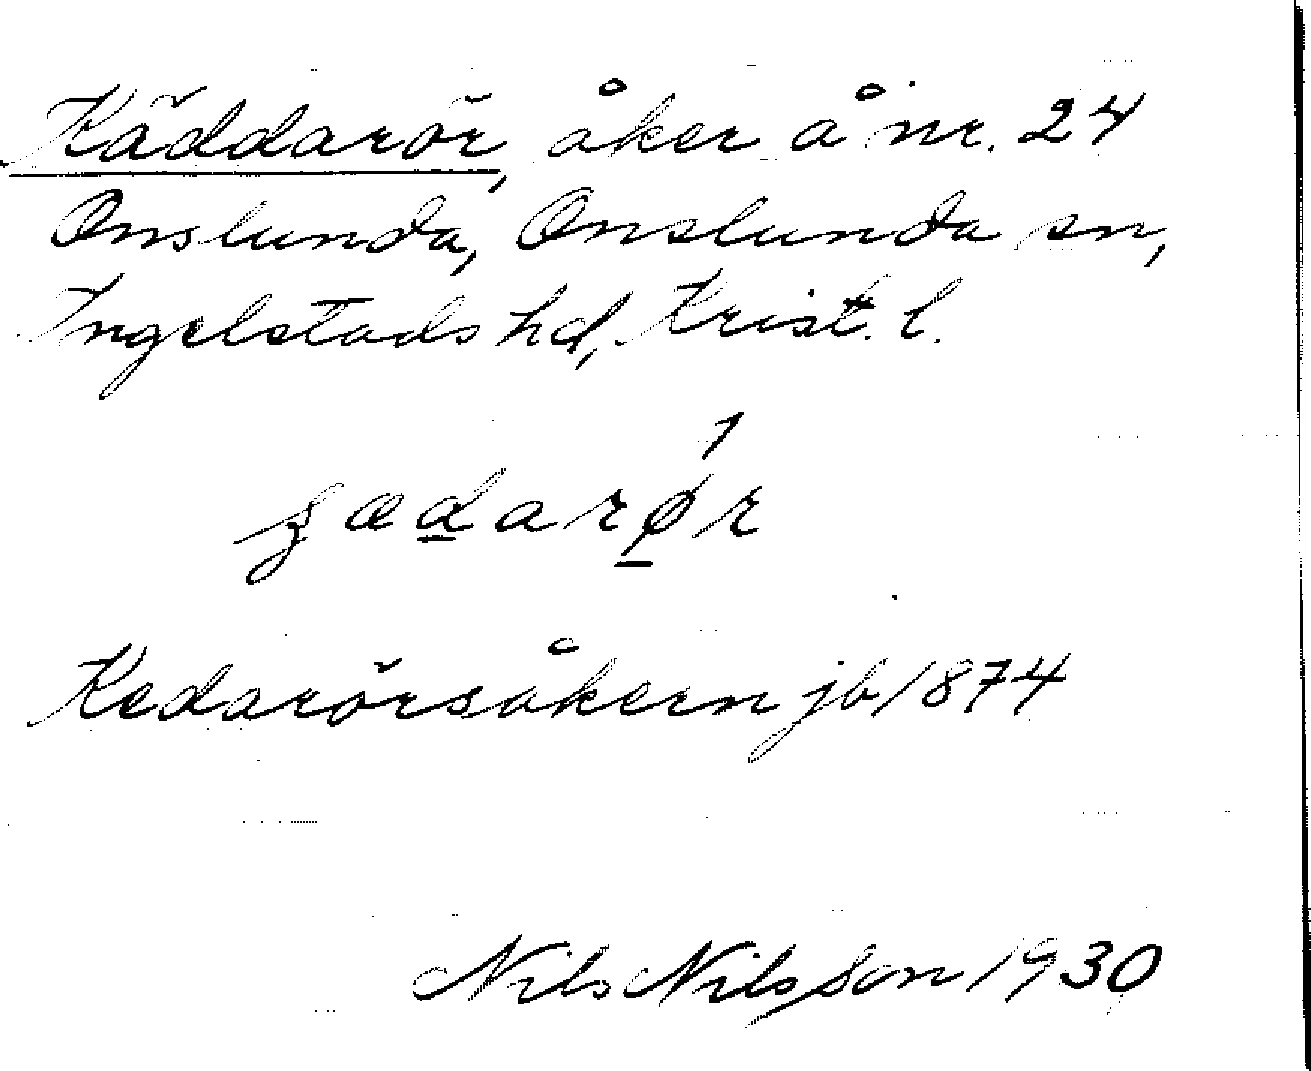 Käddarör, åker å nr. 24
Onslunda, Onslunda sn,
Ingelstads hd, Krist. l.
Kedarörsåkern jb 1874
Nils Nilsson 1930